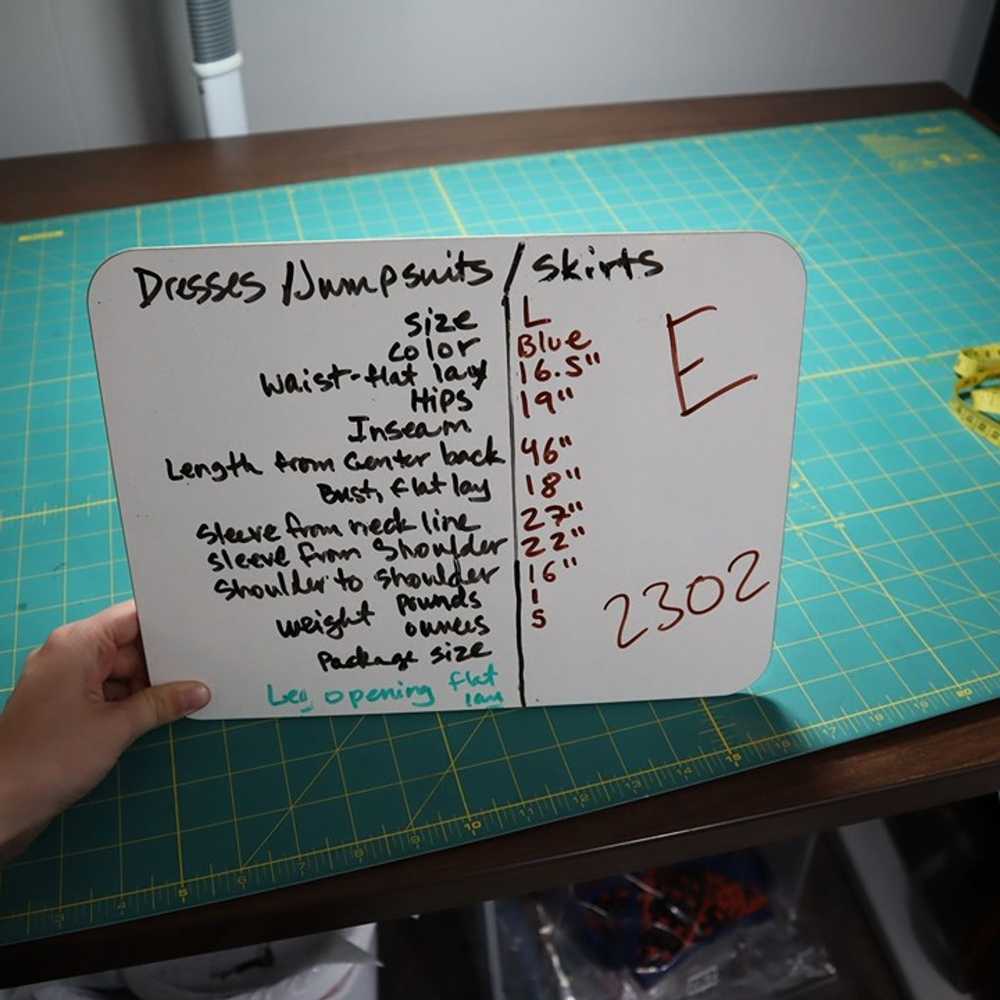 Dresses / Jumpsuits / skirts
size L
color Blue
waist-flat lay 16.5"
Hips 19"
Inseam
Length from center back 46"
Bust, flat lay 18"
sleeve from neck line 27"
sleeve from shoulder 22"
shoulder to shoulder 16"
weight pounds 1
ounces 5
Package size
Leg opening flat lay
E
2302